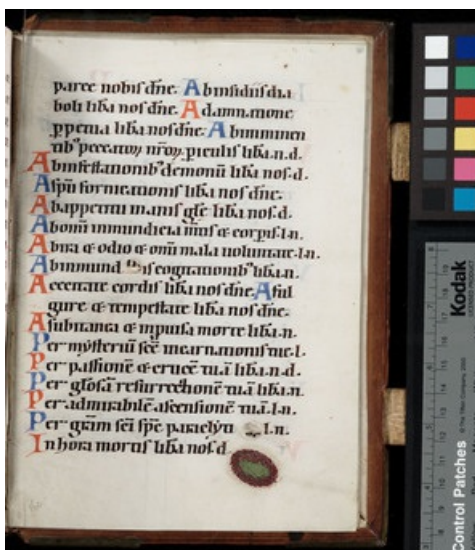 parce nobis dñe. Ab insidiis dia
boli liba nos dñe. A damnatione
ppetua liba nos dñe. Ab imminen
tib' peccatoꝝ nr̄oꝝ piculis liba.n.d.
Ab infestationib' demonū liba nos.d.
A spū fornicationis liba nos dñe.
Ab appetitu inanis glē liba nos.d.
Ab omī inmundicia mtis et corpis.l.n.
Ab ira et odio et omī mala voluntate.l.n.
Ab inmund is cogitationib' liba.n.
A cecitate cordis liba nos dñe. A ful
gure et tempestate liba nos dñe.
A subitanea et inpvisa morte liba.n.
Per mysteriū scē incarnationis tue.l.
Per passionē et crucē tuā liba.n.d.
Per gl̄osā resurrectionē tuā liba.n.
Per admirabilē ascensionē tuā.l.n.
Per grām scī spc paraclyti l.n.
In hora mortis liba nos d
Kodak
Control Patches